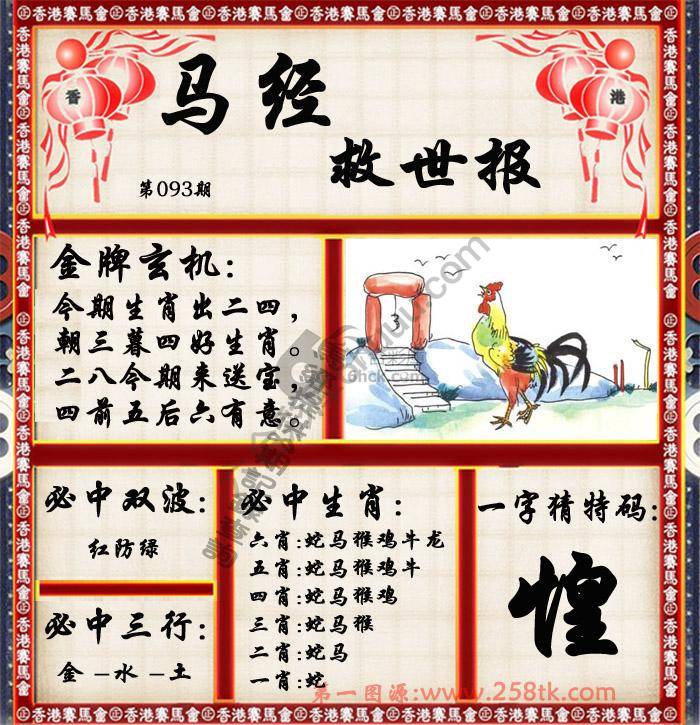 香港賽馬會
香
港
马经
救世报
第093期
金牌玄机:
今期生肖出二四，
朝三暮四好生肖。
二八今期来送宝，
四前五后六有意。
3
必中双波:
红防绿
必中三行:
金-水-土
必中生肖:
六肖:蛇马猴鸡牛龙
五肖:蛇马猴鸡牛
四肖:蛇马猴鸡
三肖:蛇马猴
二肖:蛇马
一肖:蛇
一字猜特码:
惶
第一图源:www.258tk.com